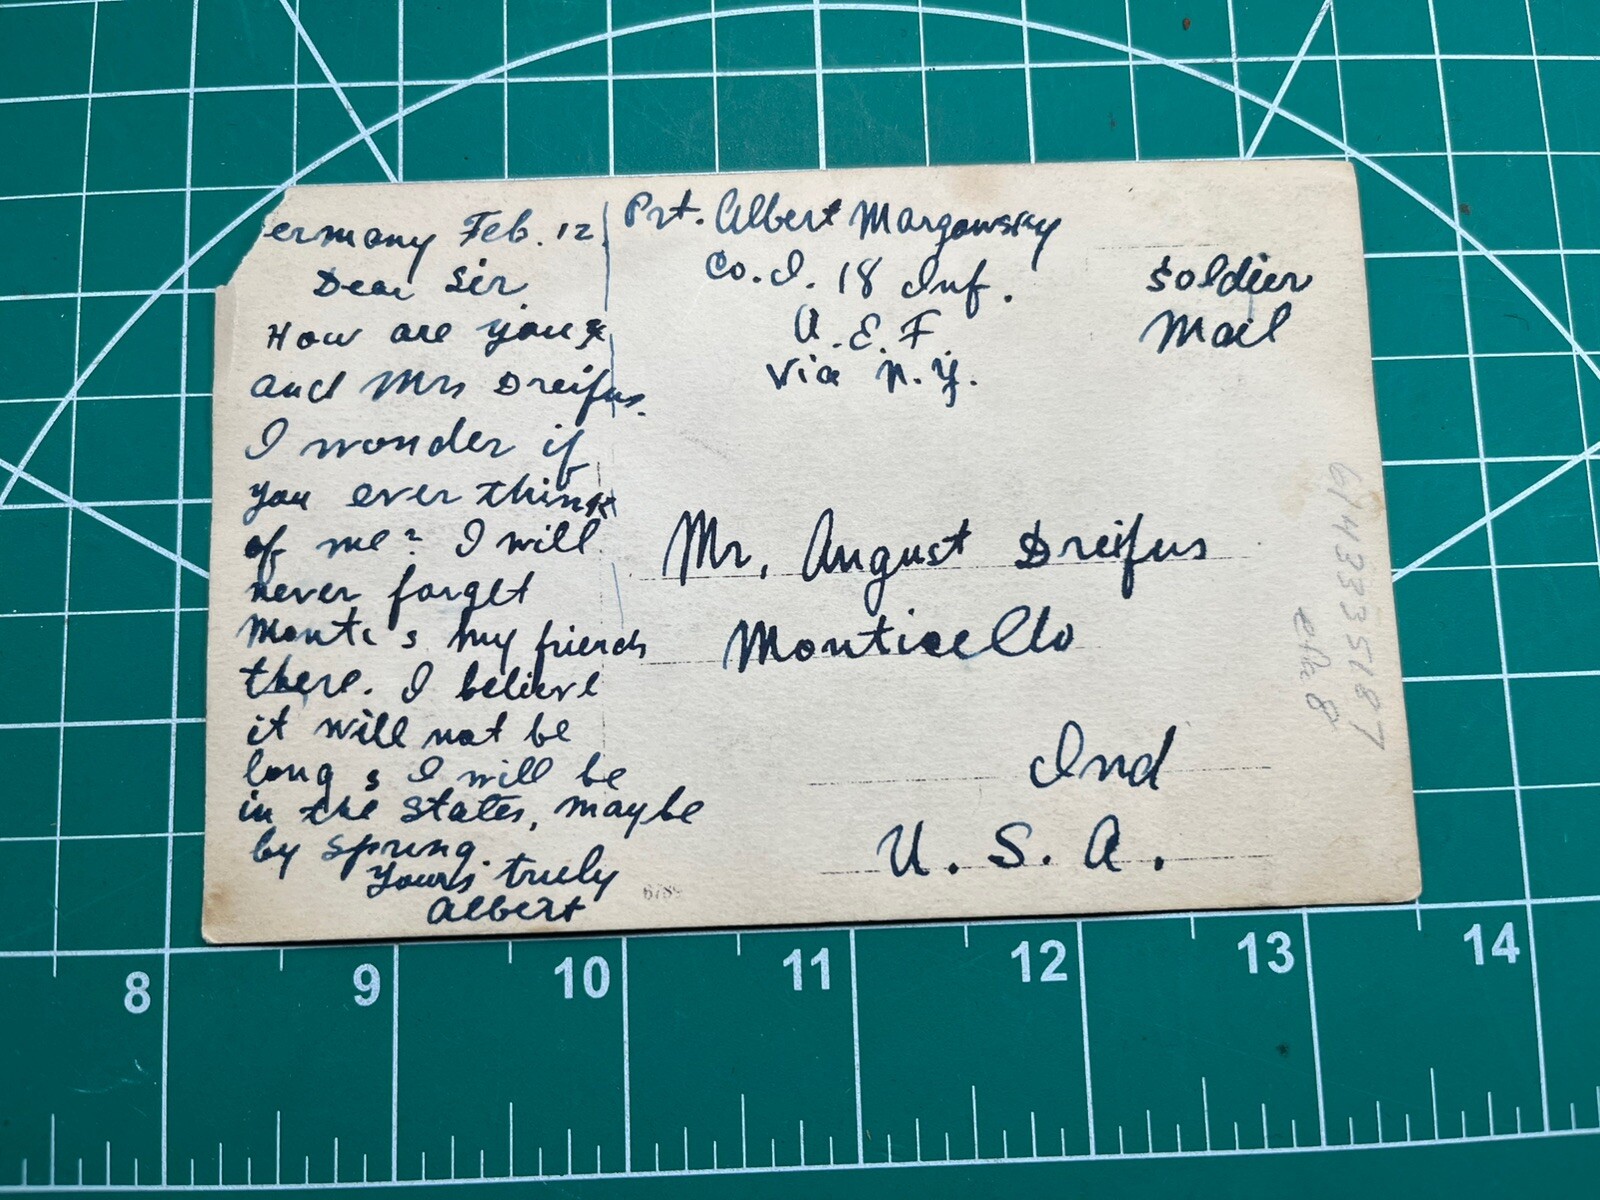 ermany Feb. 12
Dear Sir
How are you &
and Mrs Dreifus.
I wonder if
you ever think
of me? I will
never forget
Monti s my friends
there. I believe
it will not be
long s I will be
in the States, maybe
by spring.
Yours truly
Albert
Pvt. Albert Margowsky
Co. I. 18 Inf.
A. E. F
Via N.Y.
Soldier
Mail
Mr. August Dreifus
Monticello
Ind
U. S. A.
8
9
10
11
12
13
14